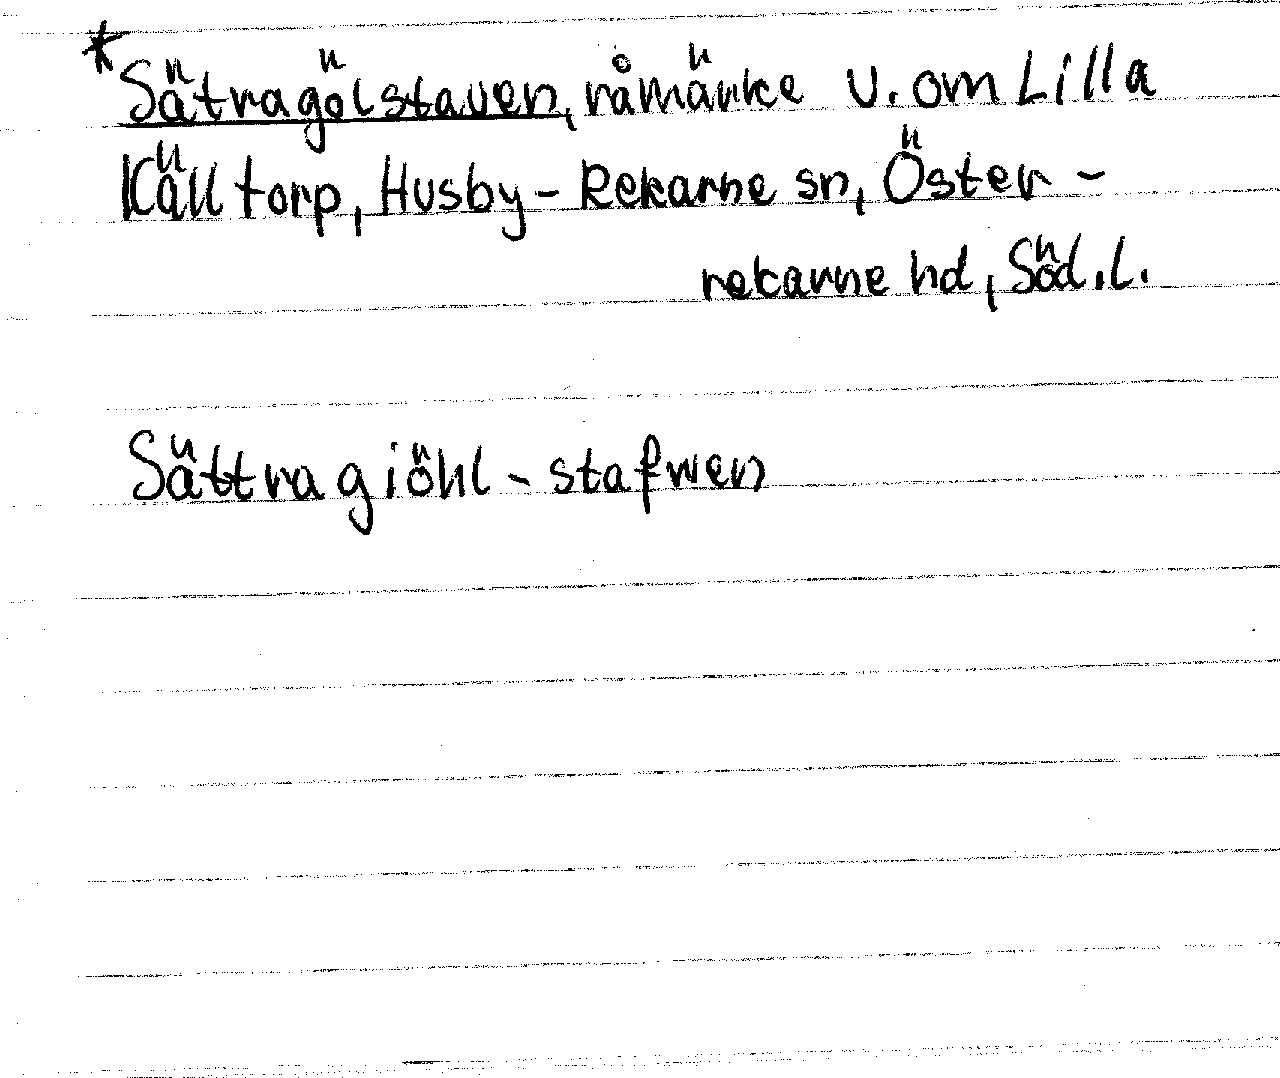 *Sätragölstaven, råmärke v. om Lilla
Källtorp, Husby-Rekarne sn, Öster-
rekarne hd, Söd.l.
Sättragiöhl-stafwen